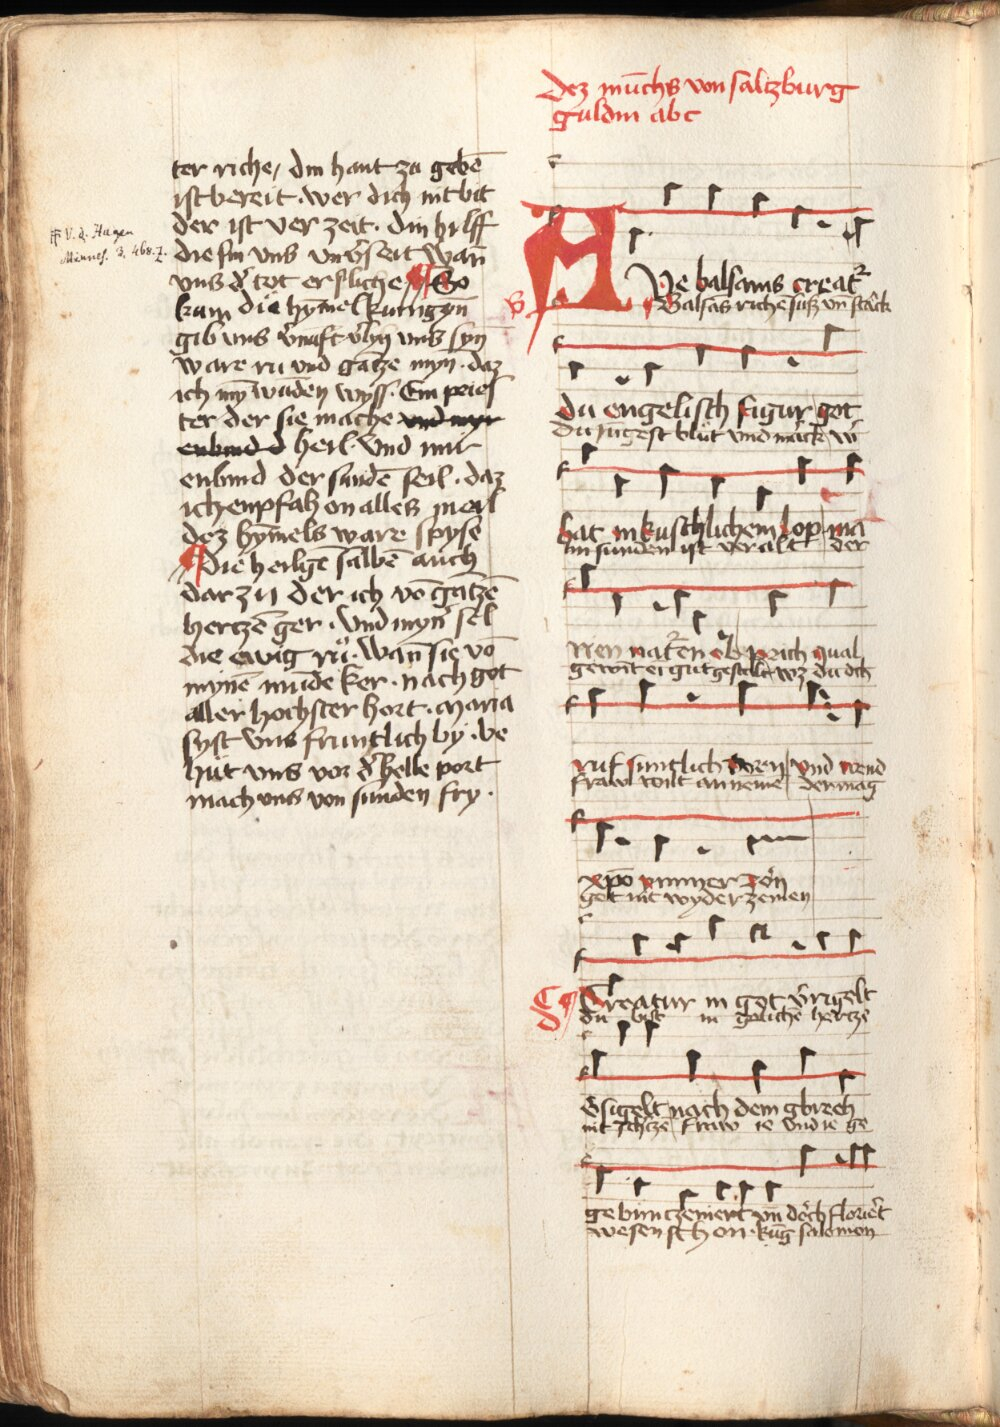 ter riche / din hant zu gebē
ist bereit · wer dich nit bit
der ist ver zeit · din hilff
die sin vns vnv̄seit wan̄
vns d̄ tot erslliche So
kum die hȳmelkunigȳn
gib vns v̄nūft v̄lyh vns syn
ware ru vnd gāтze myn · daz
ich my̅ wirden wyss · Ein pries
ter der sie mache vnd myr
enbind d heil · Vnd mir
enbind der sundē seil · daz
ich enpfah on alles meil
dez hȳmels ware spyse
die heilgē salbē auch
dar zu der ich vō gātzē
hertzē ger · Vnd myn̄ sel
die ewig ru · Wan̄ sie vō
mynē mūde ker · nach got
aller hochster hort · Maria
syst vns fruntlich by · be
hüt vns vor d̄ helle port
mach vns von sunden fry ·
V. d. Hagen
Minnes. 3. 468.
dez mūchs von saltzburg
guldin abc
AVe balsams creat
B Balsas riche süß vn̄ starck
du engelisch figur got
du jūgest blüt vnd mack
hat in kuschlichem lop ma
im sunden ist veralt der
rren naten ob prich qual
gewīt ei gut gestalt wz du dich
ruf suntlich doren vnd wend
fraw wilt an neme der mag
xpō ymmer
got nit wyder zemen
C Creatur in got v̄rigelt
D du bist in gotliche hertze
v̄sigelt nach dem gbrech
mit schertze fraw ie vnd ie ge
gebimczeniert vn̄ doch floriert
wesen schon · kūg salomon